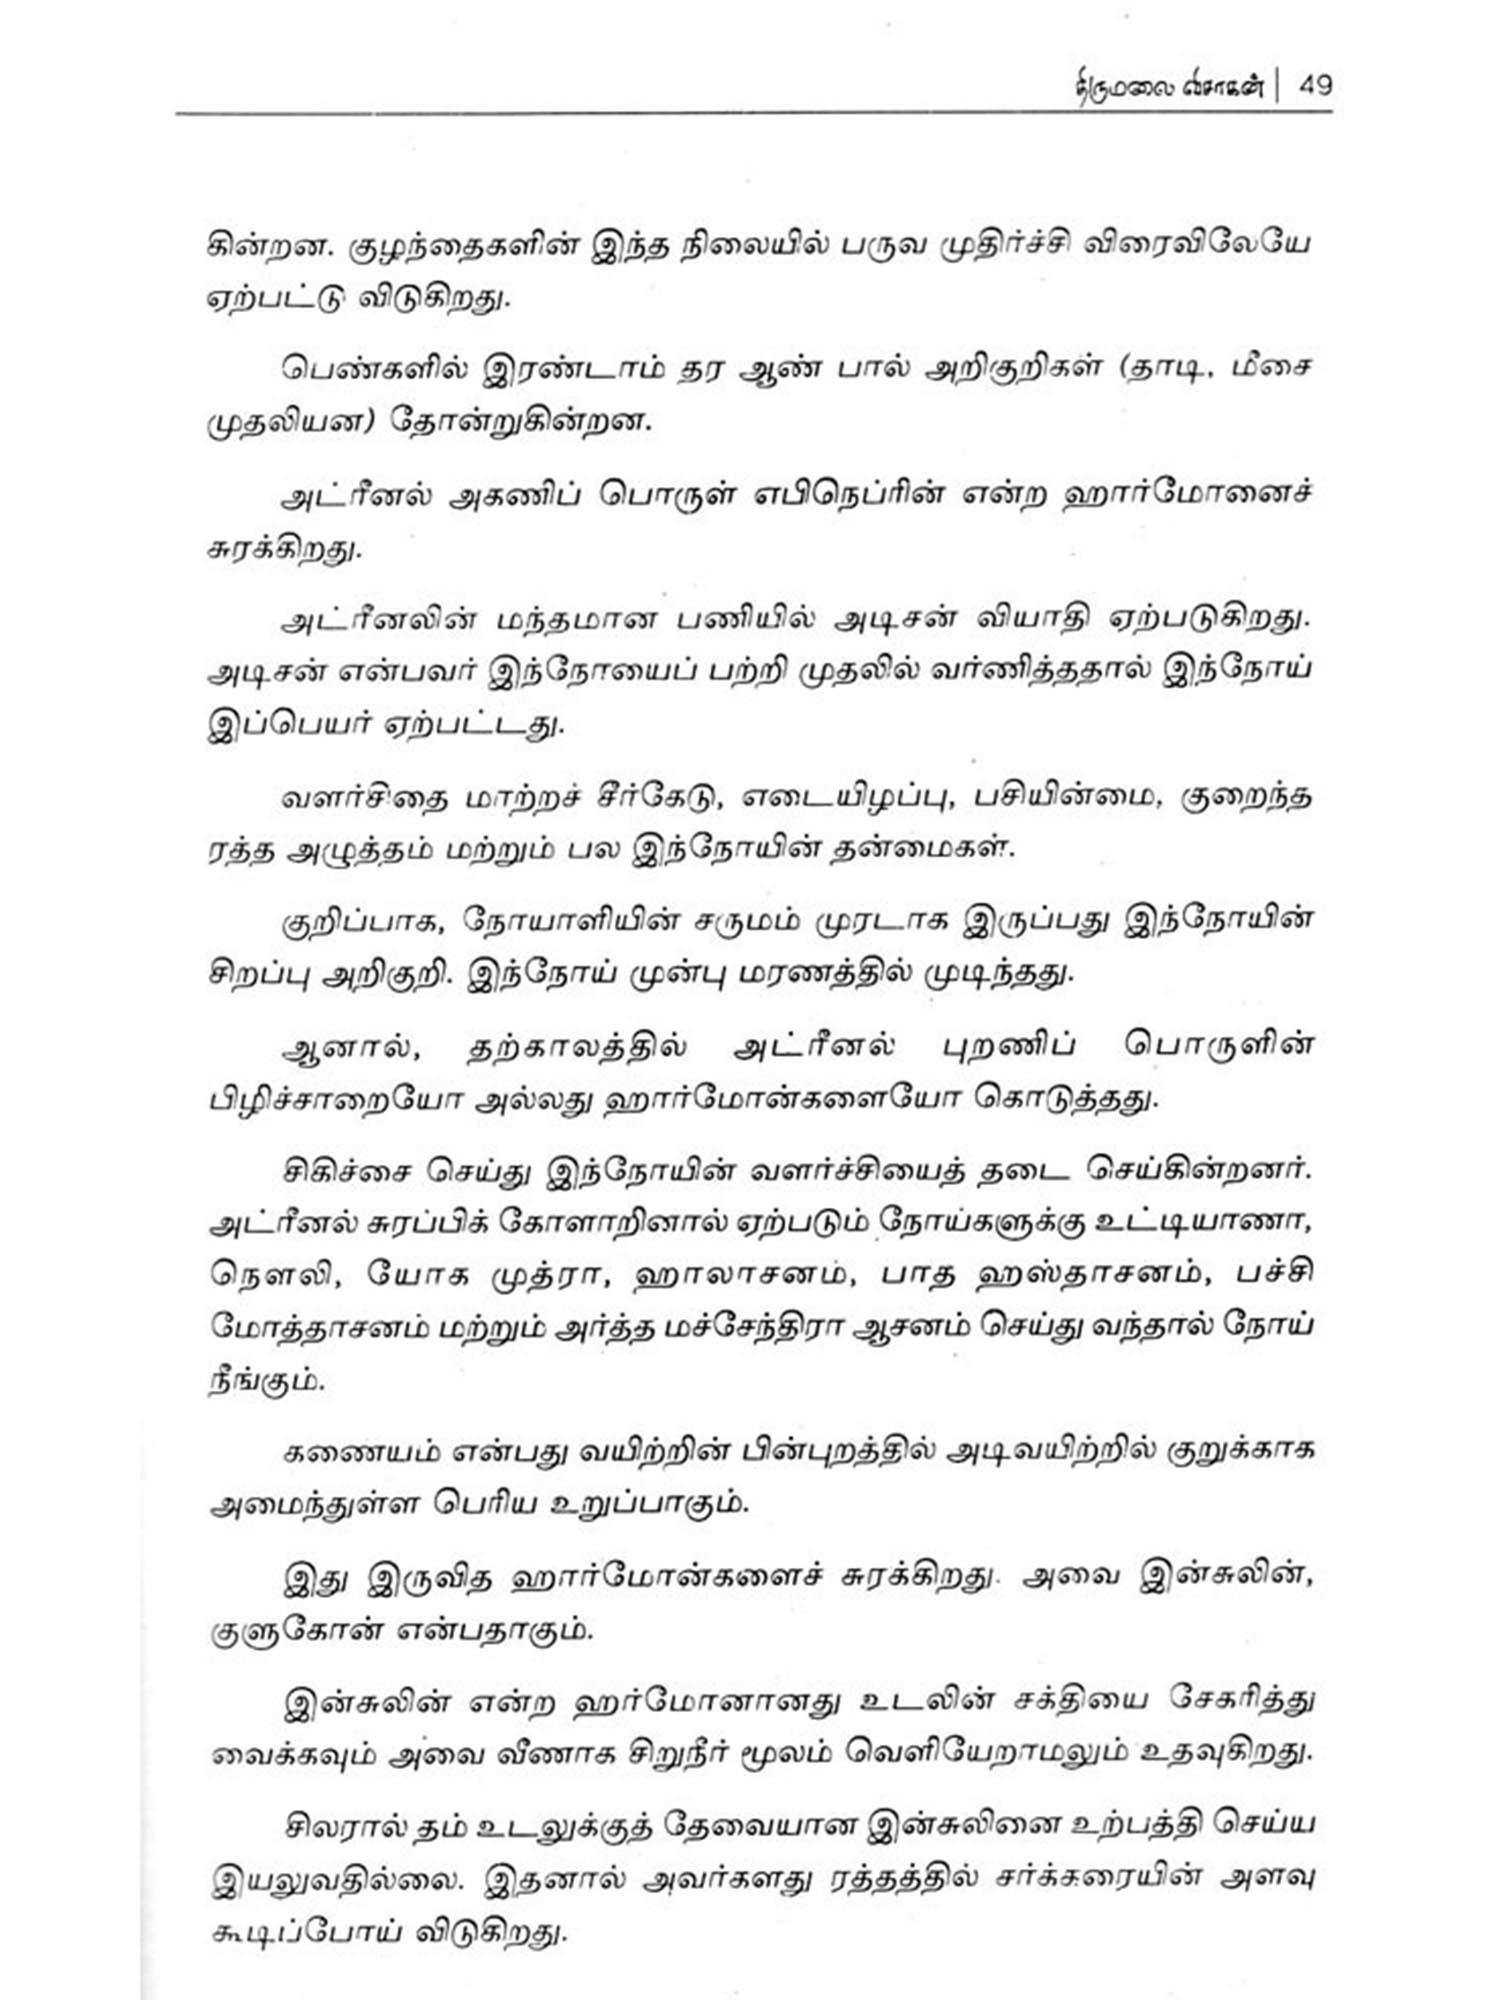 திருமலை விசாகன் | 49
கின்றன. குழந்தைகளின் இந்த நிலையில் பருவ முதிர்ச்சி விரைவிலேயே
ஏற்பட்டு விடுகிறது.
பெண்களில் இரண்டாம் தர ஆண் பால் அறிகுறிகள் (தாடி, மீசை
முதலியன) தோன்றுகின்றன.
அட்ரீனல் அகணிப் பொருள் எபிநெப்ரின் என்ற ஹார்மோனைச்
சுரக்கிறது.
அட்ரீனலின் மந்தமான பணியில் அடிசன் வியாதி ஏற்படுகிறது.
அடிசன் என்பவர் இந்நோயைப் பற்றி முதலில் வர்ணித்ததால் இந்நோய்
இப்பெயர் ஏற்பட்டது.
வளர்சிதை மாற்றச் சீர்கேடு, எடையிழப்பு, பசியின்மை, குறைந்த
ரத்த அழுத்தம் மற்றும் பல இந்நோயின் தன்மைகள்.
குறிப்பாக, நோயாளியின் சருமம் முரடாக இருப்பது இந்நோயின்
சிறப்பு அறிகுறி. இந்நோய் முன்பு மரணத்தில் முடிந்தது.
ஆனால், தற்காலத்தில் அட்ரீனல் புறணிப் பொருளின்
பிழிச்சாறையோ அல்லது ஹார்மோன்களையோ கொடுத்தது.
சிகிச்சை செய்து இந்நோயின் வளர்ச்சியைத் தடை செய்கின்றனர்.
அட்ரீனல் சுரப்பிக் கோளாறினால் ஏற்படும் நோய்களுக்கு உட்டியாணா,
நௌலி, யோக முத்ரா, ஹாலாசனம், பாத ஹஸ்தாசனம், பச்சி
மோத்தாசனம் மற்றும் அர்த்த மச்சேந்திரா ஆசனம் செய்து வந்தால் நோய்
நீங்கும்.
கணையம் என்பது வயிற்றின் பின்புறத்தில் அடிவயிற்றில் குறுக்காக
அமைந்துள்ள பெரிய உறுப்பாகும்.
இது இருவித ஹார்மோன்களைச் சுரக்கிறது. அவை இன்சுலின்,
குளுகோன் என்பதாகும்.
இன்சுலின் என்ற ஹர்மோனானது உடலின் சக்தியை சேகரித்து
வைக்கவும் அவை வீணாக சிறுநீர் மூலம் வெளியேறாமலும் உதவுகிறது.
சிலரால் தம் உடலுக்குத் தேவையான இன்சுலினை உற்பத்தி செய்ய
இயலுவதில்லை. இதனால் அவர்களது ரத்தத்தில் சர்க்கரையின் அளவு
கூடிப்போய் விடுகிறது.